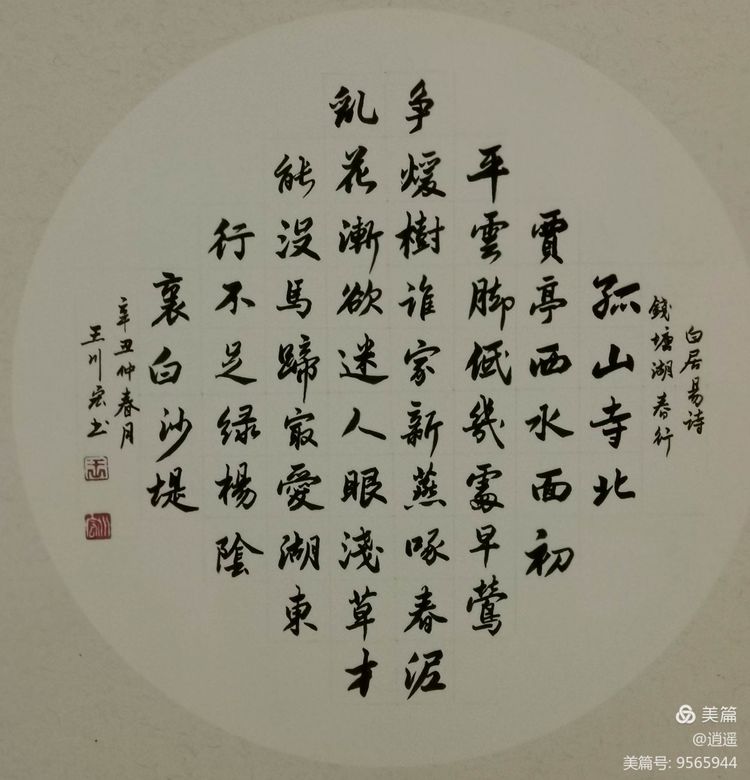 白居易诗
錢塘湖春行
孤山寺北
賈亭西水面初
平雲脚低幾處早鶯
争煖樹谁家新燕啄春泥
乱花漸欲迷人眼淺草才
能没馬蹄最愛湖東
行不足绿楊陰
裏白沙堤
辛丑仲春月
王川宏书
王
川宏
美篇
@逍遥
美篇号: 9565944